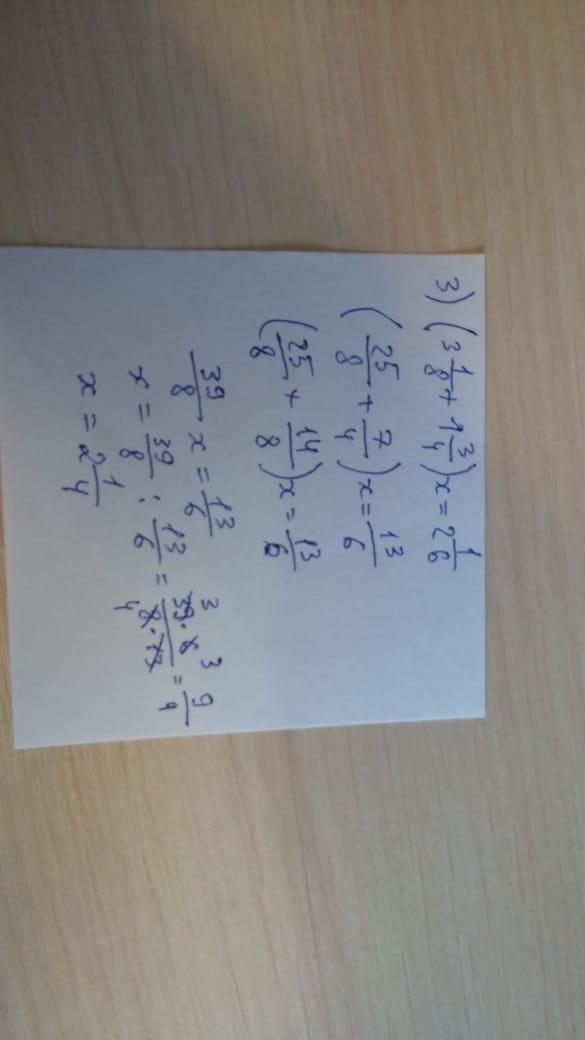 3) (3 1/8 + 1 3/4)x = 2 1/6
(25/8 + 7/4)x = 13/6
(25/8 + 14/8)x = 13/6
39/8 x = 13/6
x = 39/8 : 13/6 = 39·6/8·13 = 9/4
3 3 4
x = 2 1/4